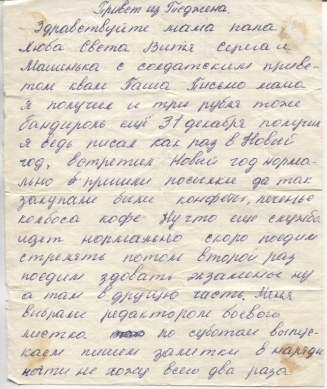 Привет из Теджена.
Здравствуйте мама папа
Люба Света Витя Серега и
Машинька с солдатским приве-
том к вам Гаша Письмо мама
я получил и три рубля тоже
бандироль ещё 31 декабря получил
я ведь писал как раз в Новый
год, встретил Новый год норма-
льно пришли посылки да так
закупали были конфеты, печенье
колбоса кофе Ну что еще служба
идет нормально скоро поедим
стрелять потом второй раз
поедим здовать экзамены ну
а там в другую часть. Меня
выбрали редактором боевого
листка по суботам выпус-
каем пишем заметки в наряды
почти не хожу всего два раза